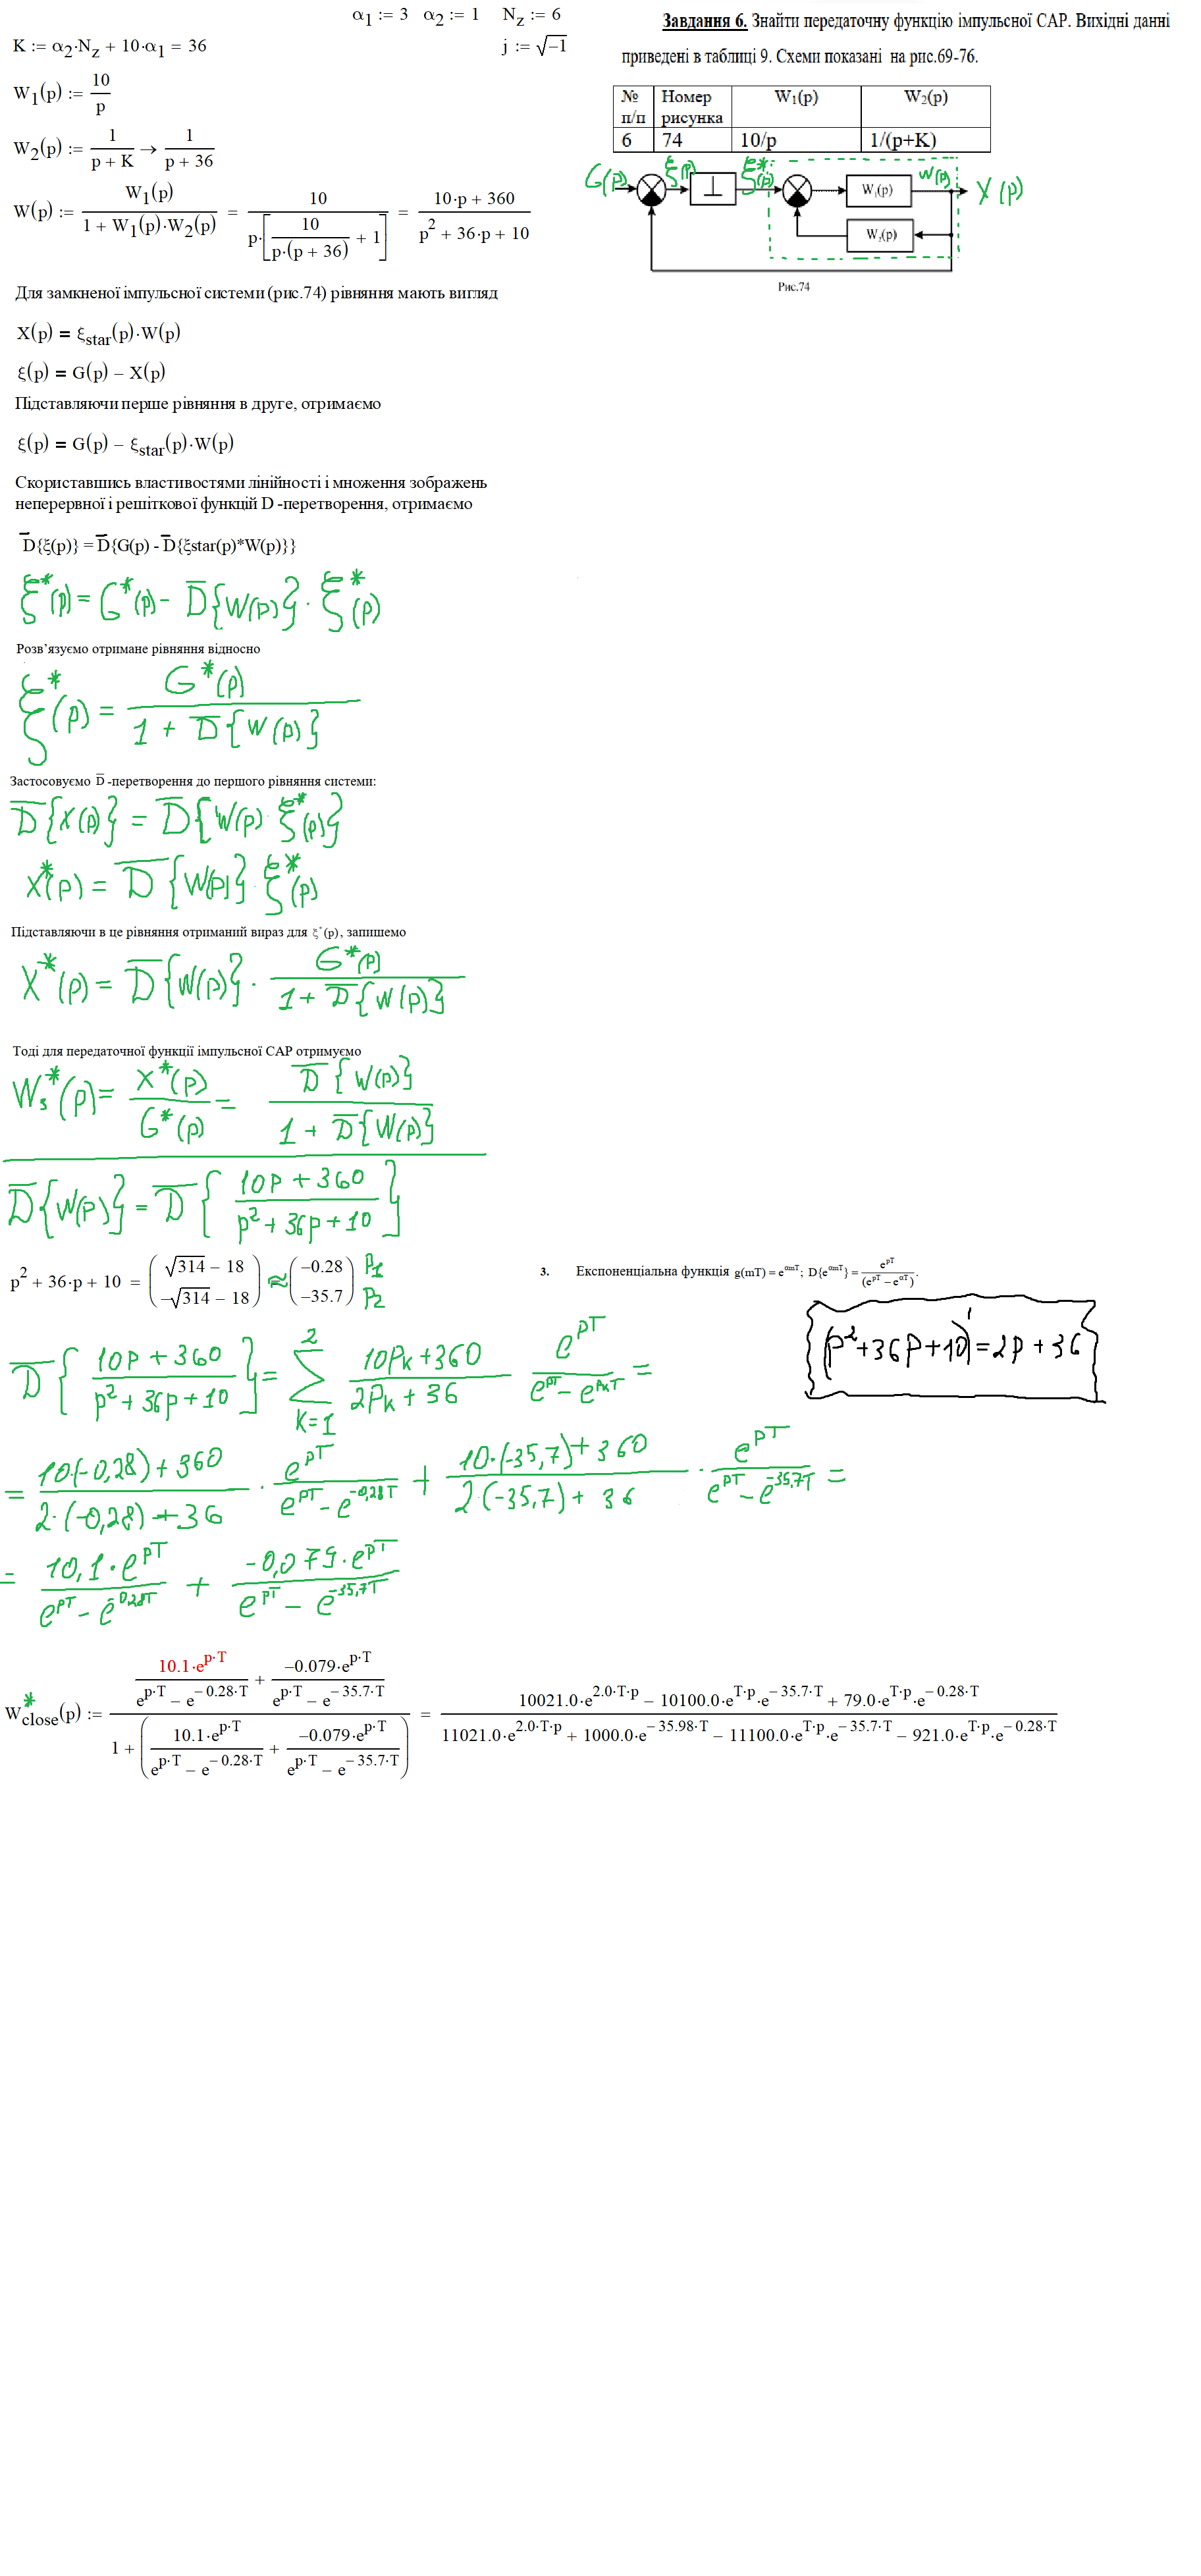 α1 := 3 α2 := 1 Nz := 6
K := α2·Nz + 10·α1 = 36 j := √−1
W1(p) := 10/p
W2(p) := 1/(p + K) → 1/(p + 36)
W(p) := W1(p)/(1 + W1(p)·W2(p)) = 10/(p·[10/(p·(p + 36)) + 1]) = (10·p + 360)/(p^2 + 36·p + 10)
Завдання 6. Знайти передаточну функцію імпульсної САР. Вихідні данні
приведені в таблиці 9. Схеми показані на рис.69-76.
№ п/п Номер рисунка W1(p) W2(p)
6 74 10/p 1/(p+K)
G(p) ξ(p) ⊥ ξ*(p) W1(p) W(p) X(p)
W2(p)
Рис.74
Для замкненої імпульсної системи (рис.74) рівняння мають вигляд
X(p) = ξstar(p)·W(p)
ξ(p) = G(p) − X(p)
Підставляючи перше рівняння в друге, отримаємо
ξ(p) = G(p) − ξstar(p)·W(p)
Скориставшись властивостями лінійності і множення зображень
неперервної і решіткової функцій D -перетворення, отримаємо
D̅{ξ(p)} = D̅{G(p) - D̅{ξstar(p)*W(p)}}
ξ*(p) = G*(p) - D̅{W(p)} · ξ*(p)
Розв’язуємо отримане рівняння відносно
ξ*(p) = G*(p)/(1 + D̅{W(p)})
Застосовуємо D̅ -перетворення до першого рівняння системи:
D̅{X(p)} = D̅{W(p) · ξ*(p)}
X*(p) = D̅{W(p)} · ξ*(p)
Підставляючи в це рівняння отриманий вираз для ξ*(p), запишемо
X*(p) = D̅{W(p)} · G*(p)/(1 + D̅{W(p)})
Тоді для передаточної функції імпульсної САР отримуємо
Wз*(p) = X*(p)/G*(p) = D̅{W(p)}/(1 + D̅{W(p)})
D̅{W(p)} = D̅{(10p + 360)/(p^2 + 36p + 10)}
p^2 + 36·p + 10 = (√314 − 18; −√314 − 18) ≈ (−0.28; −35.7) P1 P2
3. Експоненціальна функція g(mT) = e^αmT; D{e^αmT} = e^pT/(e^pT − e^αT).
(p^2 + 36p + 10)' = 2p + 36
D̅{(10p + 360)/(p^2 + 36p + 10)} = Σ k=1 2 (10Pk + 360)/(2Pk + 36) e^pT/(e^pT − e^PkT) =
= (10·(-0,28) + 360)/(2·(-0,28) + 36) · e^pT/(e^pT − e^-0,28T) + (10·(-35,7) + 360)/(2·(-35,7) + 36) · e^pT/(e^pT − e^-35,7T) =
= 10,1·e^pT/(e^pT − e^-0,28T) + -0,079·e^pT/(e^pT − e^-35,7T)
W*close(p) := (10.1·e^p·T/(e^p·T − e^−0.28·T) + −0.079·e^p·T/(e^p·T − e^−35.7·T))/(1 + (10.1·e^p·T/(e^p·T − e^−0.28·T) + −0.079·e^p·T/(e^p·T − e^−35.7·T))) = (10021.0·e^2.0·T·p − 10100.0·e^T·p·e^−35.7·T + 79.0·e^T·p·e^−0.28·T)/(11021.0·e^2.0·T·p + 1000.0·e^−35.98·T − 11100.0·e^T·p·e^−35.7·T − 921.0·e^T·p·e^−0.28·T)